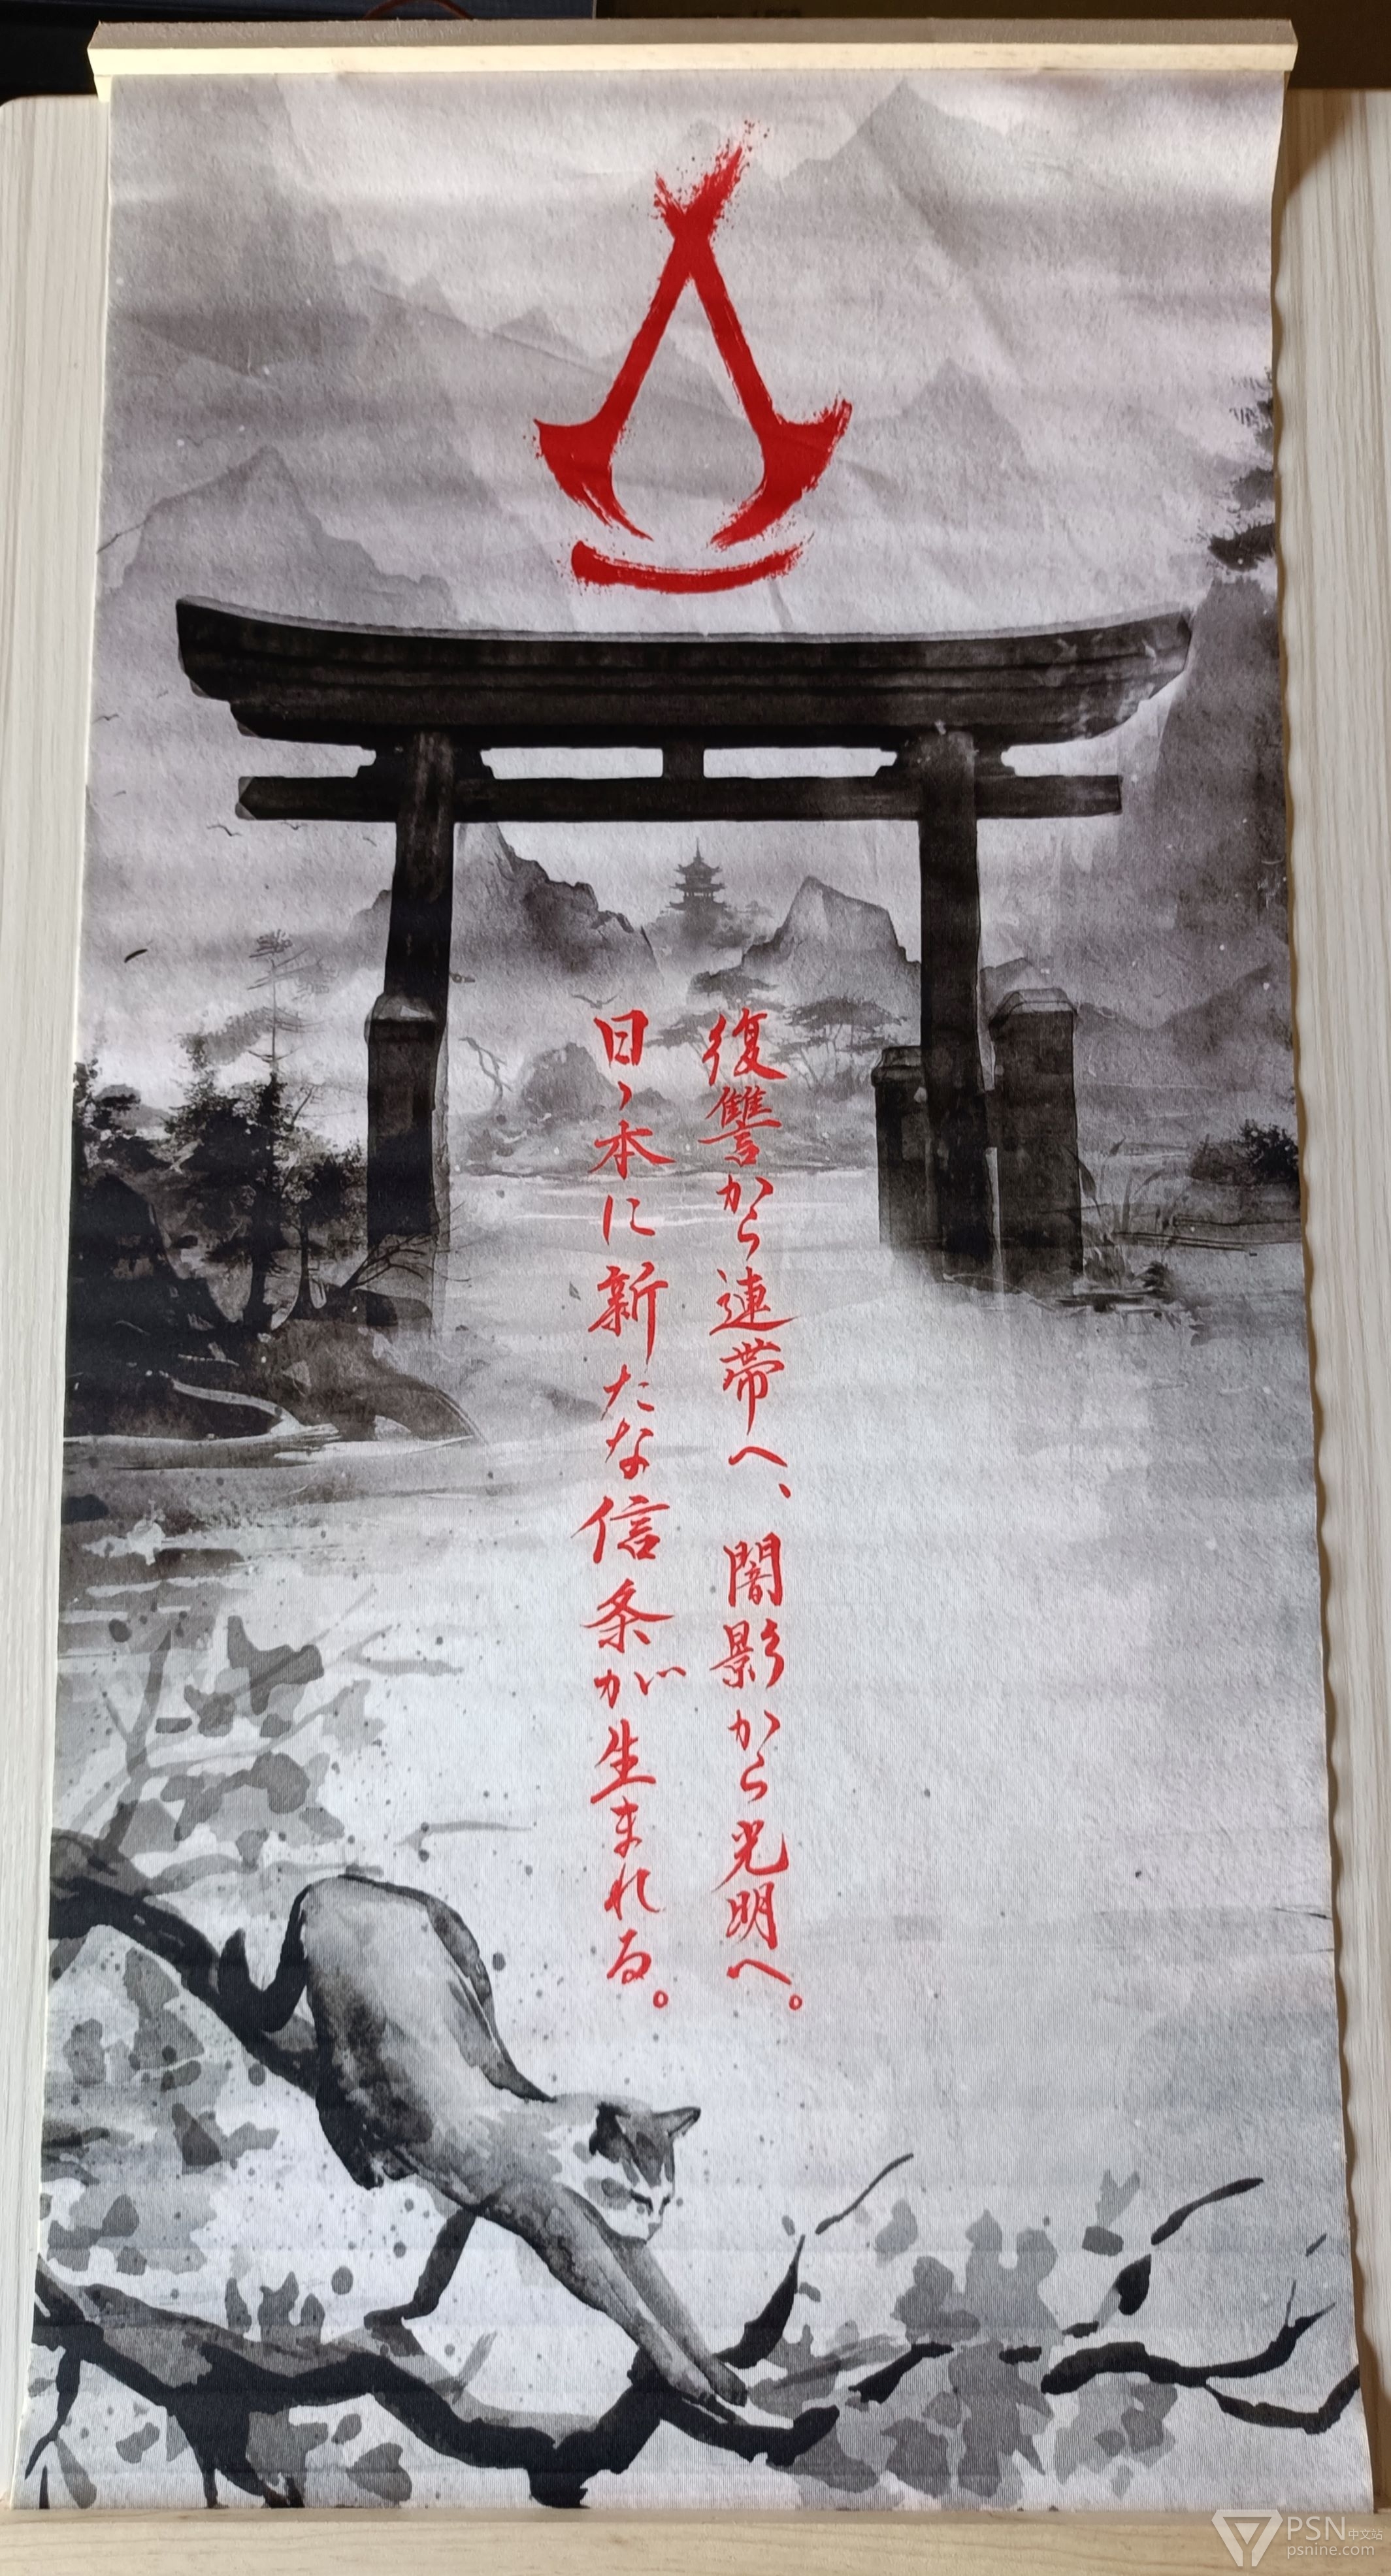 復讐から連帯へ、闇影から光明へ。
日ヽ本に新たな信条が生まれる。
PSN中文站
psnine.com